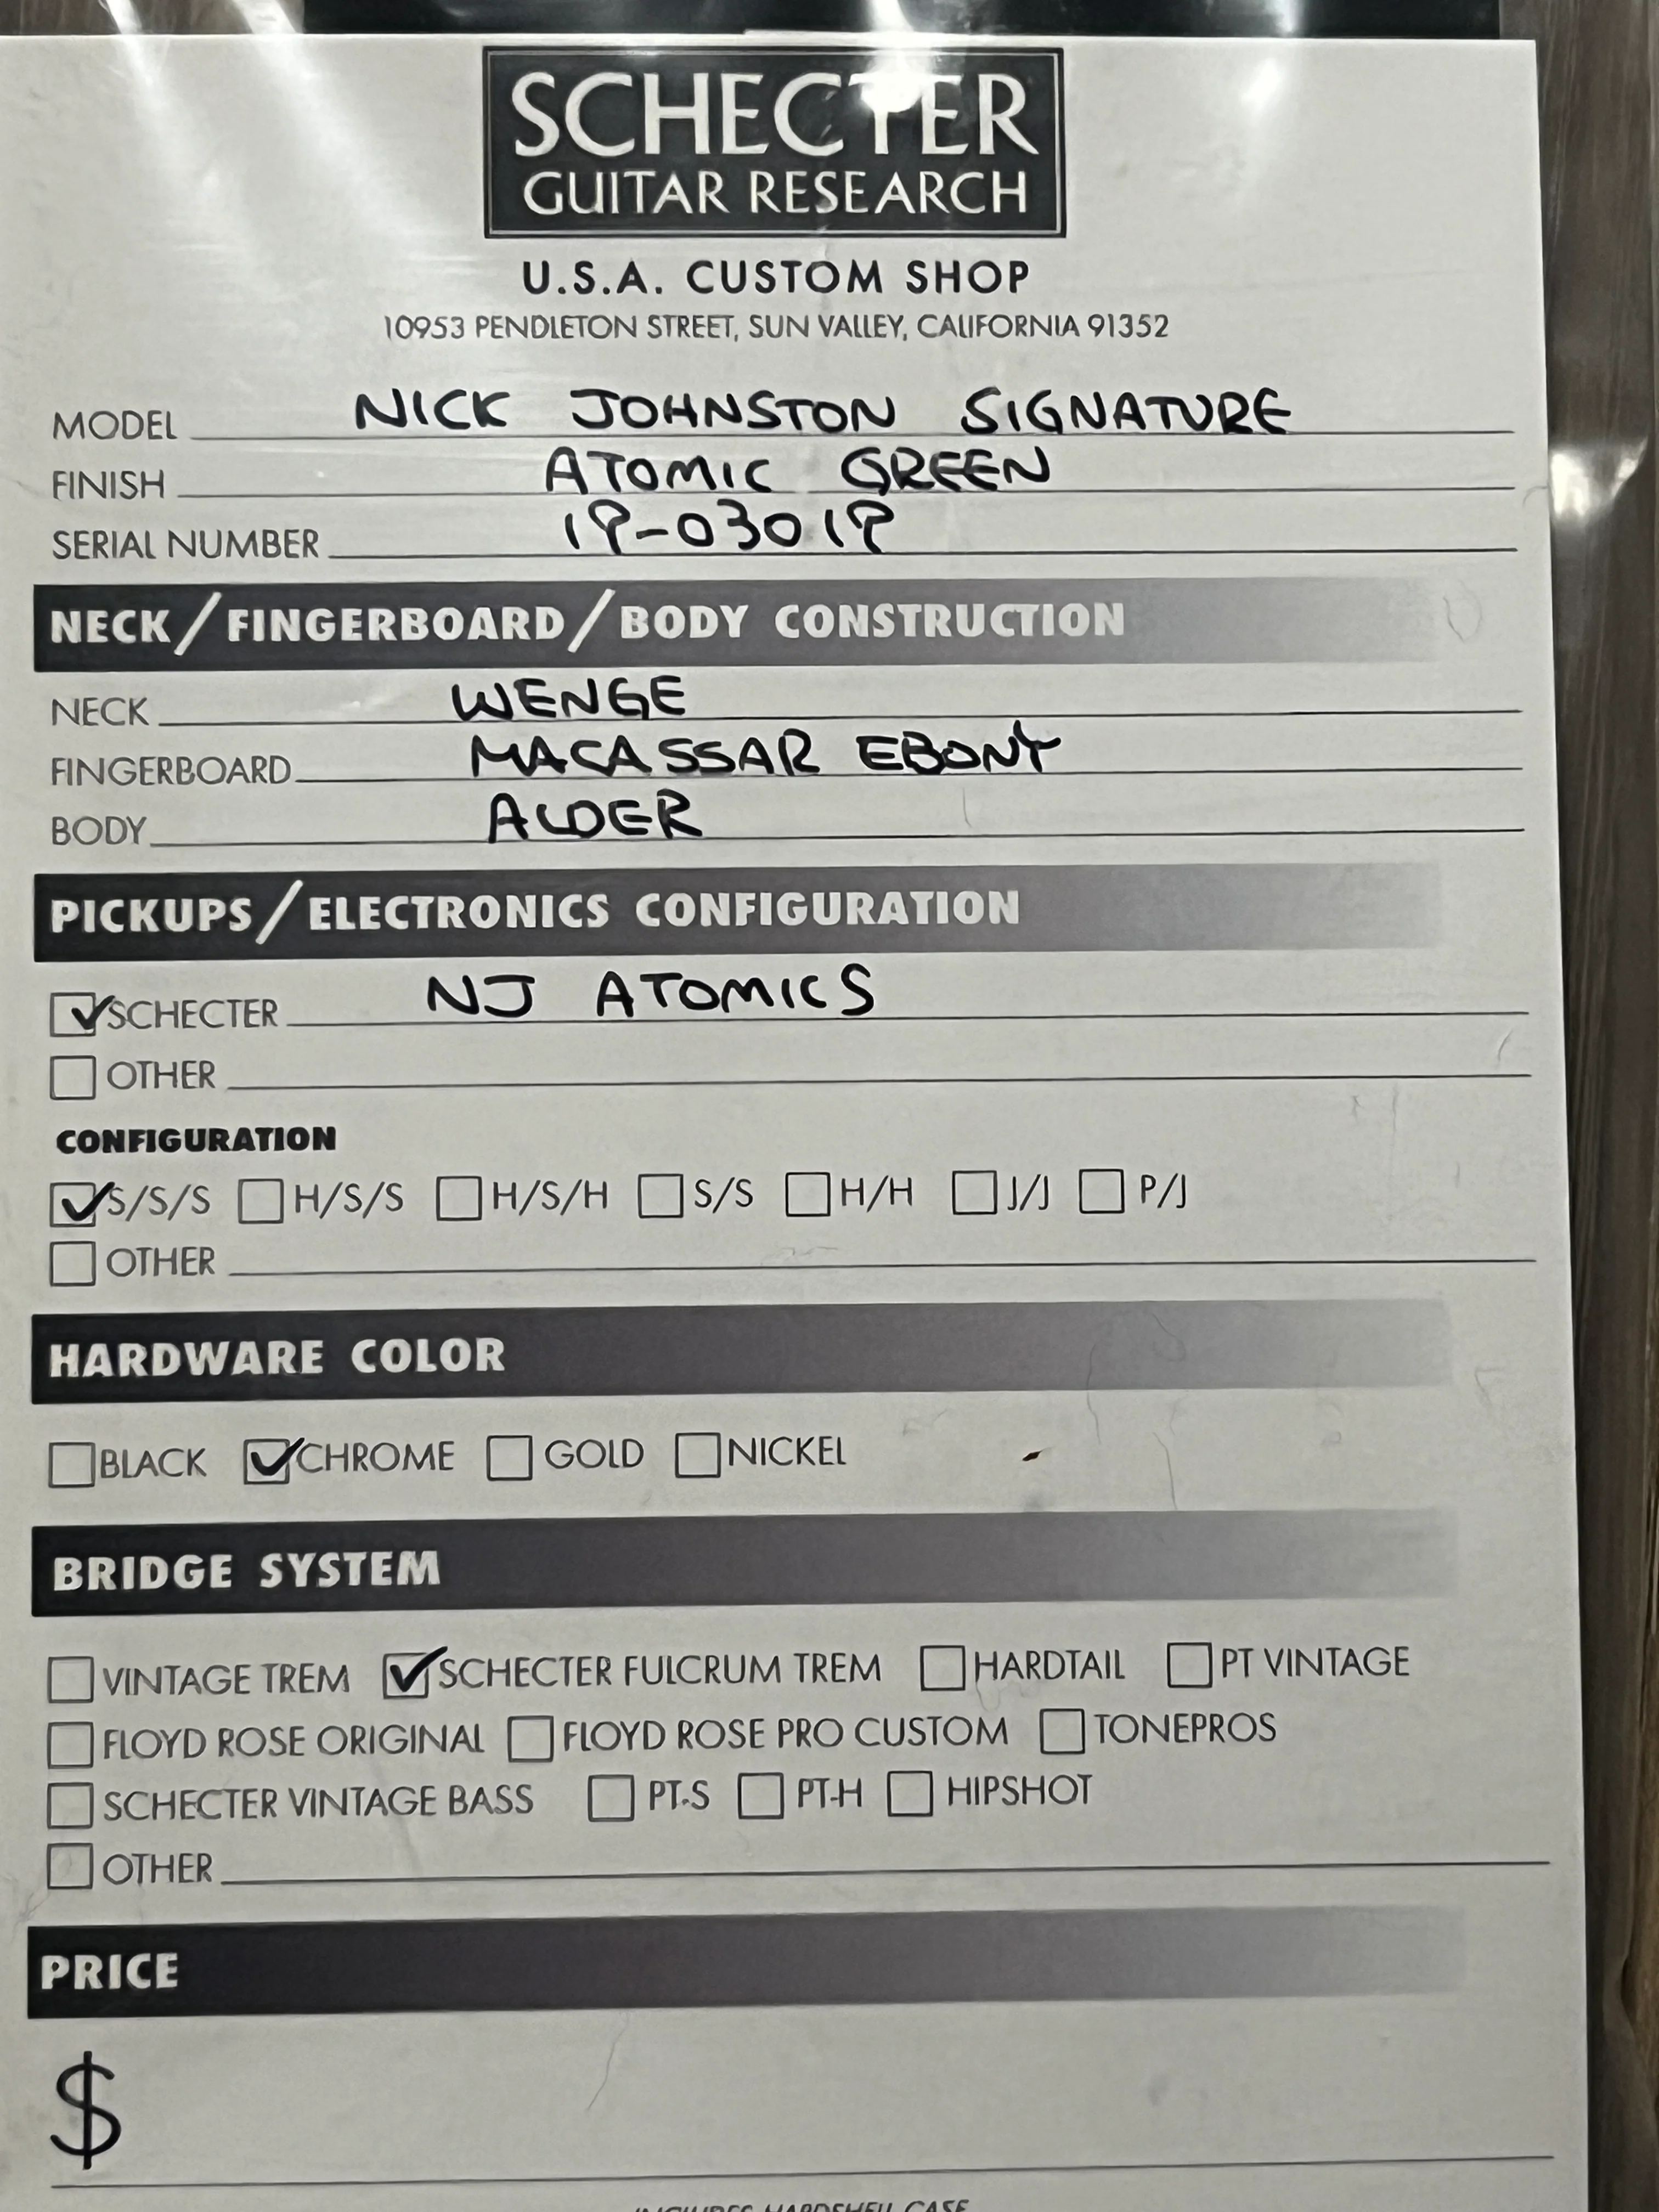 SCHECTER
GUITAR RESEARCH
U.S.A. CUSTOM SHOP
10953 PENDLETON STREET, SUN VALLEY, CALIFORNIA 91352
MODEL NICK JOHNSTON SIGNATURE
FINISH ATOMIC GREEN
SERIAL NUMBER 19-03019
NECK/FINGERBOARD/BODY CONSTRUCTION
NECK WENGE
FINGERBOARD MACASSAR EBONY
BODY ALDER
PICKUPS/ELECTRONICS CONFIGURATION
SCHECTER NJ ATOMICS
OTHER
CONFIGURATION
S/S/S H/S/S H/S/H S/S H/H J/J P/J
OTHER
HARDWARE COLOR
BLACK CHROME GOLD NICKEL
BRIDGE SYSTEM
VINTAGE TREM SCHECTER FULCRUM TREM HARDTAIL PT VINTAGE
FLOYD ROSE ORIGINAL FLOYD ROSE PRO CUSTOM TONEPROS
SCHECTER VINTAGE BASS PT-S PT-H HIPSHOT
OTHER
PRICE
$
INCLUDES HARDSHELL CASE